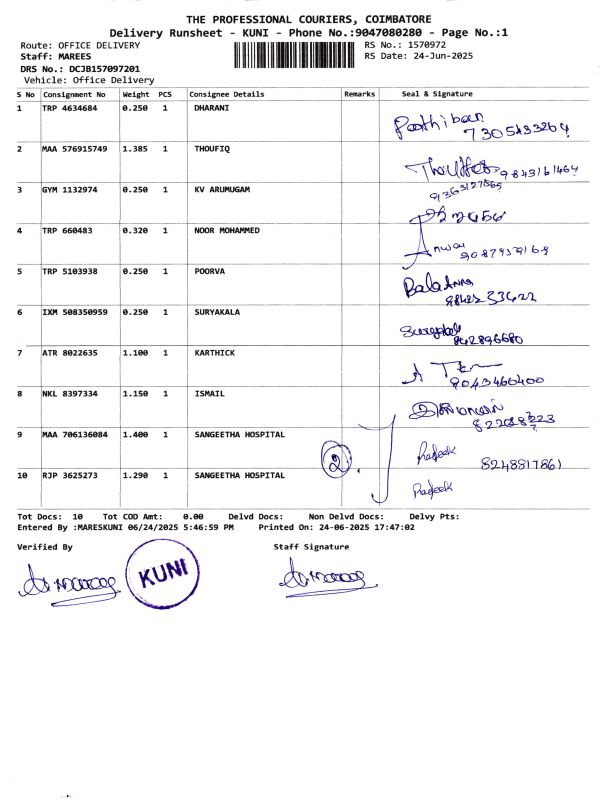 THE PROFESSIONAL COURIERS, COIMBATORE
Delivery Runsheet - KUNI - Phone No.:9047080280 - Page No.:1
Route: OFFICE DELIVERY RS No.: 1570972
Staff: MAREES RS Date: 24-Jun-2025
DRS No.: DCJB157097201
Vehicle: Office Delivery
S No Consignment No Weight PCS Consignee Details Remarks Seal & Signature
1 TRP 4634684 0.250 1 DHARANI
Parthiban
7305433264
2 MAA 576915749 1.385 1 THOUFIQ
9843161464
3 GYM 1132974 0.250 1 KV ARUMUGAM
9363127865
4 TRP 660483 0.320 1 NOOR MOHAMMED
Anwar
5 TRP 5103938 0.250 1 POORVA
Bala
6 IXM 508350959 0.250 1 SURYAKALA
Suryakala
842896680
7 ATR 8022635 1.100 1 KARTHICK
9043460400
8 NKL 8397334 1.150 1 ISMAIL
9 MAA 706136084 1.400 1 SANGEETHA HOSPITAL
Prateek
8248817861
2
10 RJP 3625273 1.290 1 SANGEETHA HOSPITAL
Prateek
Tot Docs: 10 Tot COD Amt: 0.00 Delvd Docs: Non Delvd Docs: Delvy Pts:
Entered By :MARESKUNI 06/24/2025 5:46:59 PM Printed On: 24-06-2025 17:47:02
Verified By Staff Signature
KUNI